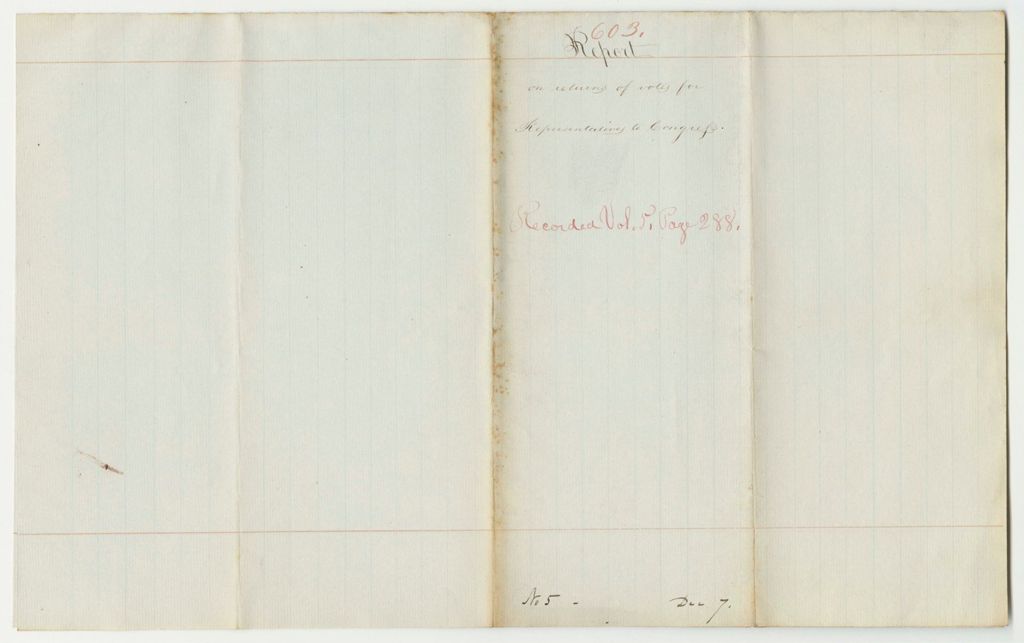 603.
Report
on returns of votes for
Representatives to Congress.
Recorded Vol. 5, Page 288.
No 5 - Dec 7.